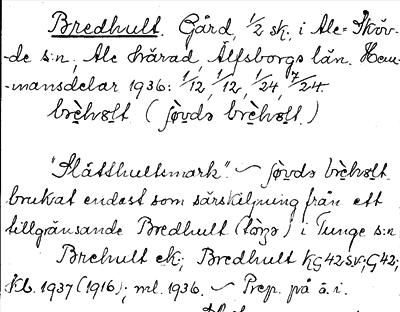 Bredhult. Gård, 1/2 sk., i Ale-Sköv-
-de s:n, Ale härad, Älfsborgs län. Hem-
-mansdelar 1936: 1/12, 1/12, 1/24, 7/24.
brèhɷlt ( ʃò̤vdə brèhɷlt.)
"Slätthultsmark". ~ ʃò̤vdə brèhɷlt
brukat endast som särskiljning från ett
tillgränsande Bredhult (tòŋə) i Tunge s:n
Brehult ek; Bredhult KG42SV; G42;
Kb. 1937 (1916); ml. 1936. ~ Prep. på ä. i.